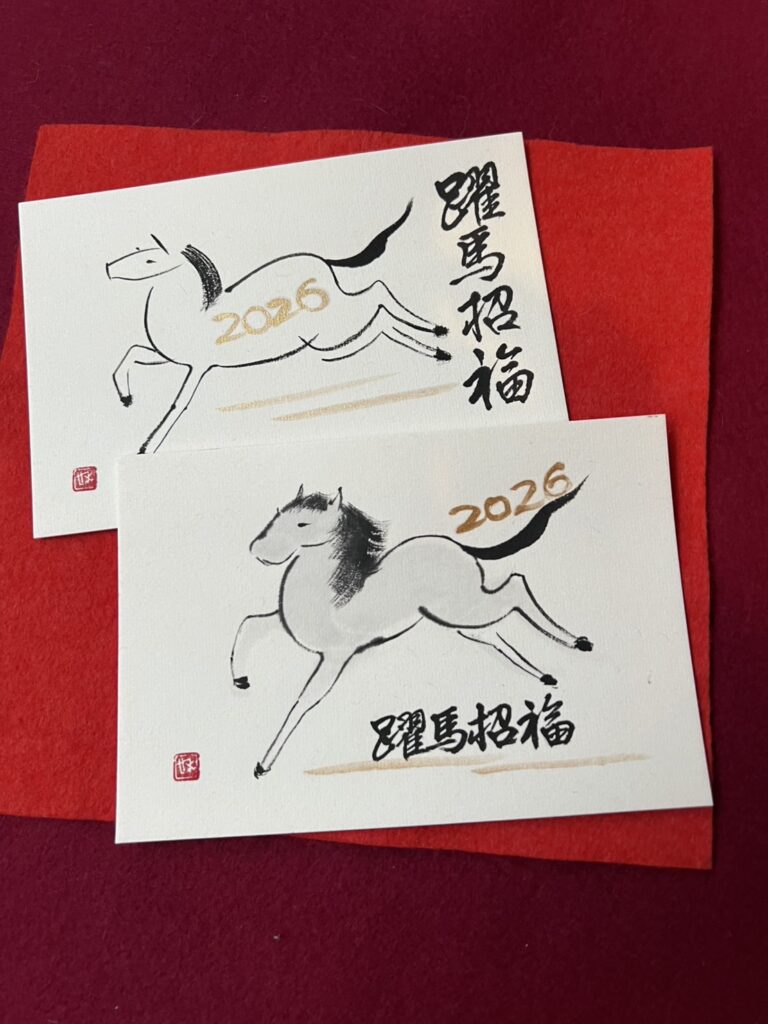 2026
躍馬招福
2026
躍馬招福